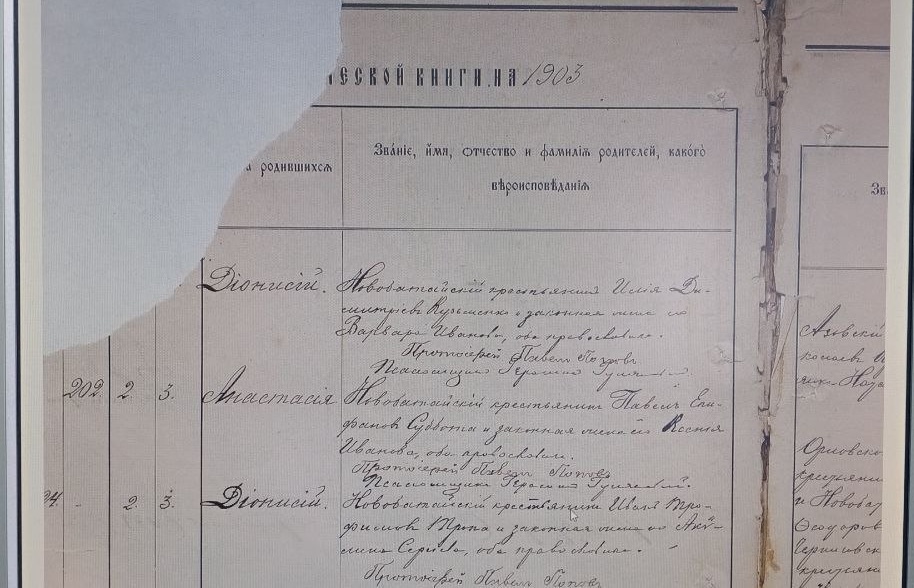 ческой книги на 1903
а родившихся
Званіе, имя, отчество и фамилія родителей, какого
вѣроисповѣданія
Діонисій.
Новобатайскій крестьянинъ Илія Ди-
митріевъ Кузьменко и законная жена его
Варвара Иванова, оба православные.
Протоіерей Павелъ Поповъ
Псаломщикъ Герасимъ
202 2. 3.
Анастасія
Новобатайскій крестьянинъ Павелъ Епи-
фановъ Суббота и законная жена его Ксенія
Иванова, оба православные.
Протоіерей Павелъ Поповъ
Псаломщикъ Герасимъ
24. - 2. 3.
Діонисій.
Новобатайскій крестьянинъ Иванъ Тро-
фимовъ и законная жена его Аки-
лина Сергѣева, оба православные.
Протоіерей Павелъ Поповъ
Зв
Азовскі
Орловско
крестьяни
и Новоба
Ѳеодоров